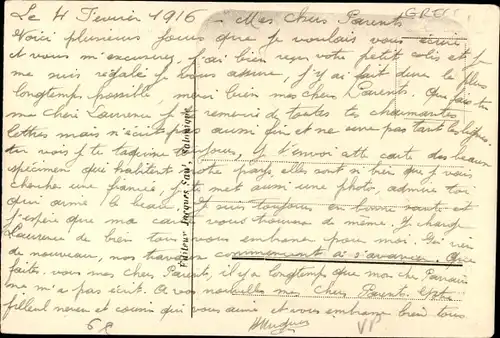 Le 4 Fevrier 1916 - Mes chers Parents GREC
Voici plusieurs jours que je voulais vous écrire
et vous m'excuserez, j'ai bien reçu votre petit colis et je
me suis régalé je vous assure, j'y ai fait durer le plus
longtemps possible, merci bien mes chers Parents. Que fais tu
ma chere Laurence je te remercie de toutes tes charmantes
lettres mais n'écrit pas aussi gros et ne serre pas tant tes lignes
tu vois je te taquine toujours, je t'envoi cette carte des beaux
spécimen qui habitent notre pays, elles sont si bien que j'y vais
cherche une fiancée, je met aussi une photo, admire toi
qui aime le beau. Je suis toujours en bonne santé et
j'espère que ma carte vous trouvera de même. Je charge
Laurence de bien tous vous embrasser pour moi. Ici rien
de nouveau, nos travaux commencent à s'avancer. Que
faites vous mes chers Parents, il y a longtemps que mon cher Parrain
ne m'a pas écrit. A vos nouvelles mes chers Parents. Votre
filleul neveu et cousin qui vous aime et vous embrasse bien tous
Hugues
Editeur Jacques Saul, Salonique